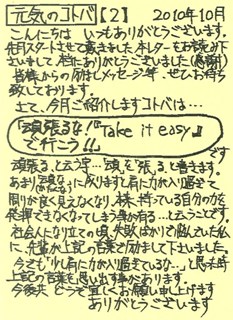 元気のコトバ【2】 2010年10月
こんにちは いつもありがとうございます。
先月スタートさせて頂きました 本レターをお読み下
さいまして 誠にありがとうございました(感謝)
皆様からの励ましメッセージ等、ぜひお待ち
致しております。
さて、今月ご紹介しますコトバは…
『頑張るな!『Take it easy』
で行こう!!』
です
頑張る、と云う字…“頑”を“張”る、と書きます。
あまり頑なに成りますと肩に力が入り過ぎて
周りが良く見えなくなり、本来、持っている自分の力を
発揮できなくなってしまう事が有る…と云うことです。
社会人になり立ての頃、失敗ばかりで悩んでいた私
に、先輩が上記の言葉で励まして下さいました。
今でも“少し肩に力が入り過ぎているな…”と思う時
上記の言葉を思い出す事があります
今後共 どうぞ宜しくお願い申し上げます
ありがとうございます